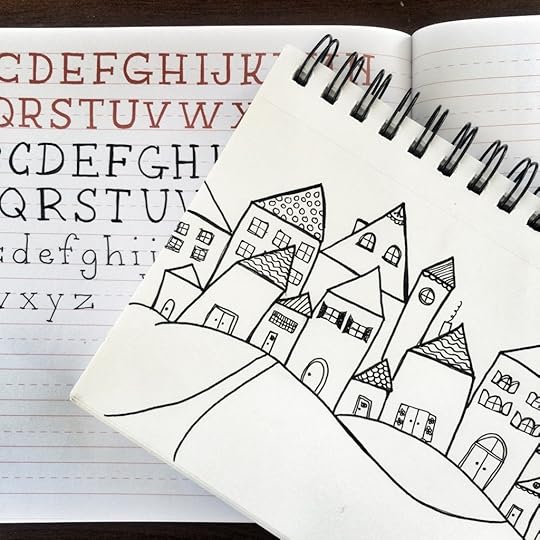 CDEFGHIJK
QRSTUVWX
CDEFGHI
QRSTUV
cdefghij
vxyz